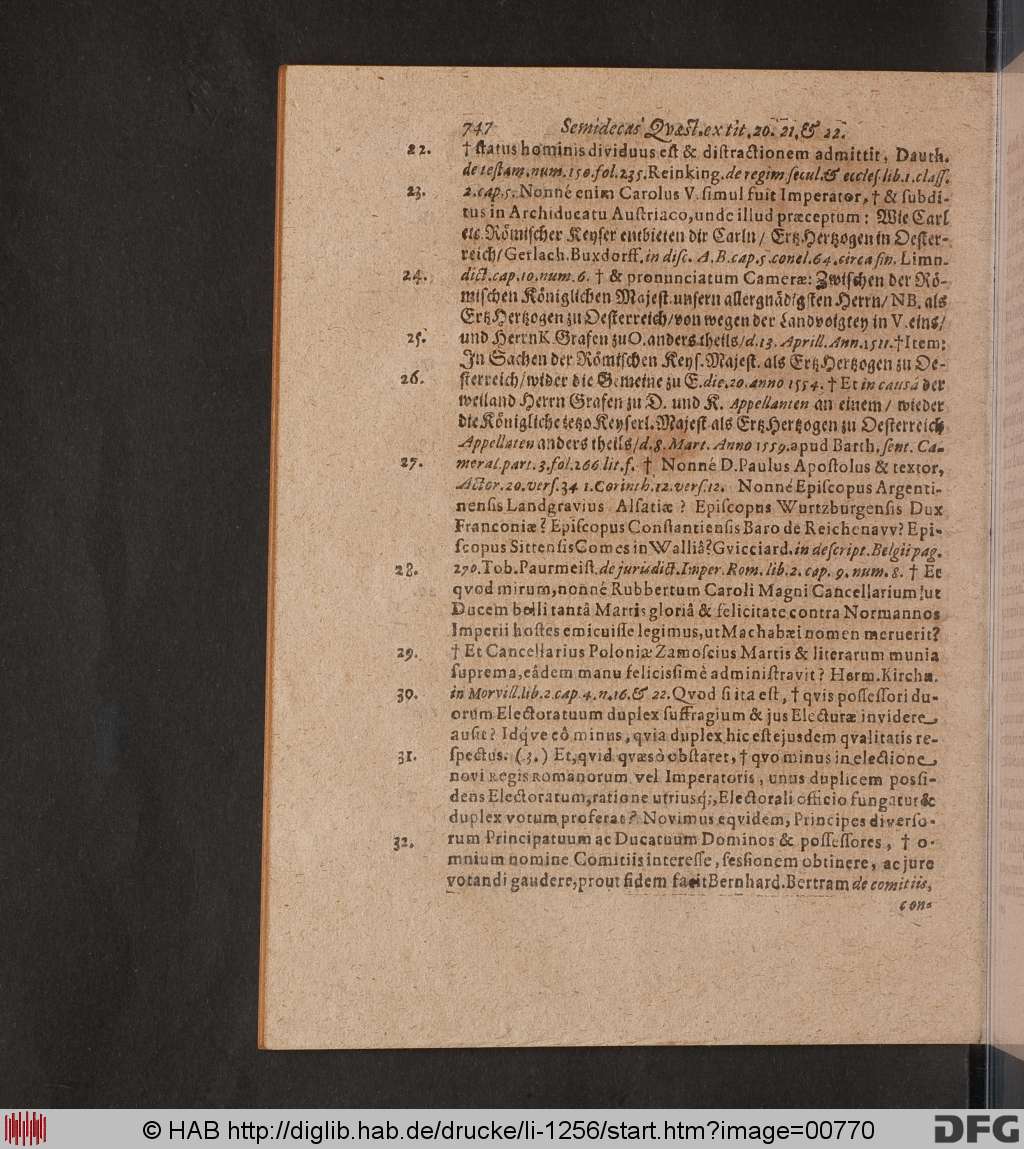 747 Semidecas Qvæst. ex tit. 20. 21. & 22.
22. † status hominis dividuus est & distractionem admittit, Dauth.
de testam. num. 150. fol. 235. Reinking. de regim secul. & eccles. lib. 1. class.
23. 2. cap. 5. Nonné enim Carolus V. simul fuit Imperator, † & subdi-
tus in Archiducatu Austriaco, unde illud præceptum: Wie Carl
etc. Römischer Keyser entbieten dir Carln / Ertz Hertzogen in Oester-
reich / Gerlach. Buxdorff. in disc. A. B. cap. 5. concl. 64. circa fin. Limn.
24. dict. cap. 10. num. 6. † & pronunciatum Cameræ: Zwischen der Rö-
mischen Königlichen Majest. unsern allergnädigsten Herrn / NB. als
Ertz Hertzogen zu Oesterreich / von wegen der Landvoigtey in V. eins /
25. und Herrn K. Grafen zu O. anders theils / d. 13. Aprill. Ann. 1511. † Item:
In Sachen der Römischen Keys. Majest. als Ertz Hertzogen zu Oe-
26. sterreich / wider die Gemeine zu E. die. 20. anno 1554. † Et in causâ der
weiland Herrn Grafen zu D. und K. Appellanten an einem / wieder
die Königliche jetzo Keyserl. Majest als Ertz Hertzogen zu Oesterreich
Appellaten anders theils / d. 8. Mart. Anno 1559. apud Barth. sent. Ca-
27. meral. part. 3. fol. 266. lit. f. † Nonné D. Paulus Apostolus & textor,
Actor. 20. vers. 34 1. Corinth. 12. vers. 12. Nonné Episcopus Argenti-
nensis Landgravius Alsatiæ? Episcopus Wurtzburgensis Dux
Franconiæ? Episcopus Constantiensis Baro de Reichenavv? Epi-
scopus Sittensis Comes in Walliâ? Gvicciard. in descript. Belgii pag.
28. 270. Tob. Paurmeist. de jurisdict. Imper. Rom. lib. 2. cap. 9. num. 8. † Et
qvod mirum, nonné Rubbertum Caroli Magni Cancellarium, ut
Ducem belli tantâ Martis gloriâ & felicitate contra Normannos
Imperii hostes emicuisse legimus, ut Machabæi nomen meruerit?
29. † Et Cancellarius Poloniæ Zamoscius Martis & literarum munia
suprema, eâdem manu felicissimè administravit? Herm. Kirchn.
30. in Morvill. lib. 2. cap. 4. n. 16. & 22. Qvod si ita est, † qvis possessori du-
orum Electoratuum duplex suffragium & jus Electuræ invidere
ausit? Idqve eô minus, qvia duplex hic est ejusdem qvalitatis re-
31. spectus. (3.) Et, qvid qvæso obstaret, † qvo minus in electione
novi Regis Romanorum vel Imperatoris, unus duplicem possi-
dens Electoratum, ratione utriusq;, Electorali officio fungatur &
duplex votum proferat? Novimus eqvidem, Principes diverso-
32. rum Principatuum ac Ducatuum Dominos & possessores, † o-
mnium nomine Comitiis interesse, sessionem obtinere, ac jure
votandi gaudere, prout fidem facit Bernhard. Bertram de comitiis,
con-
© HAB http://diglib.hab.de/drucke/li-1256/start.htm?image=00770
DFG